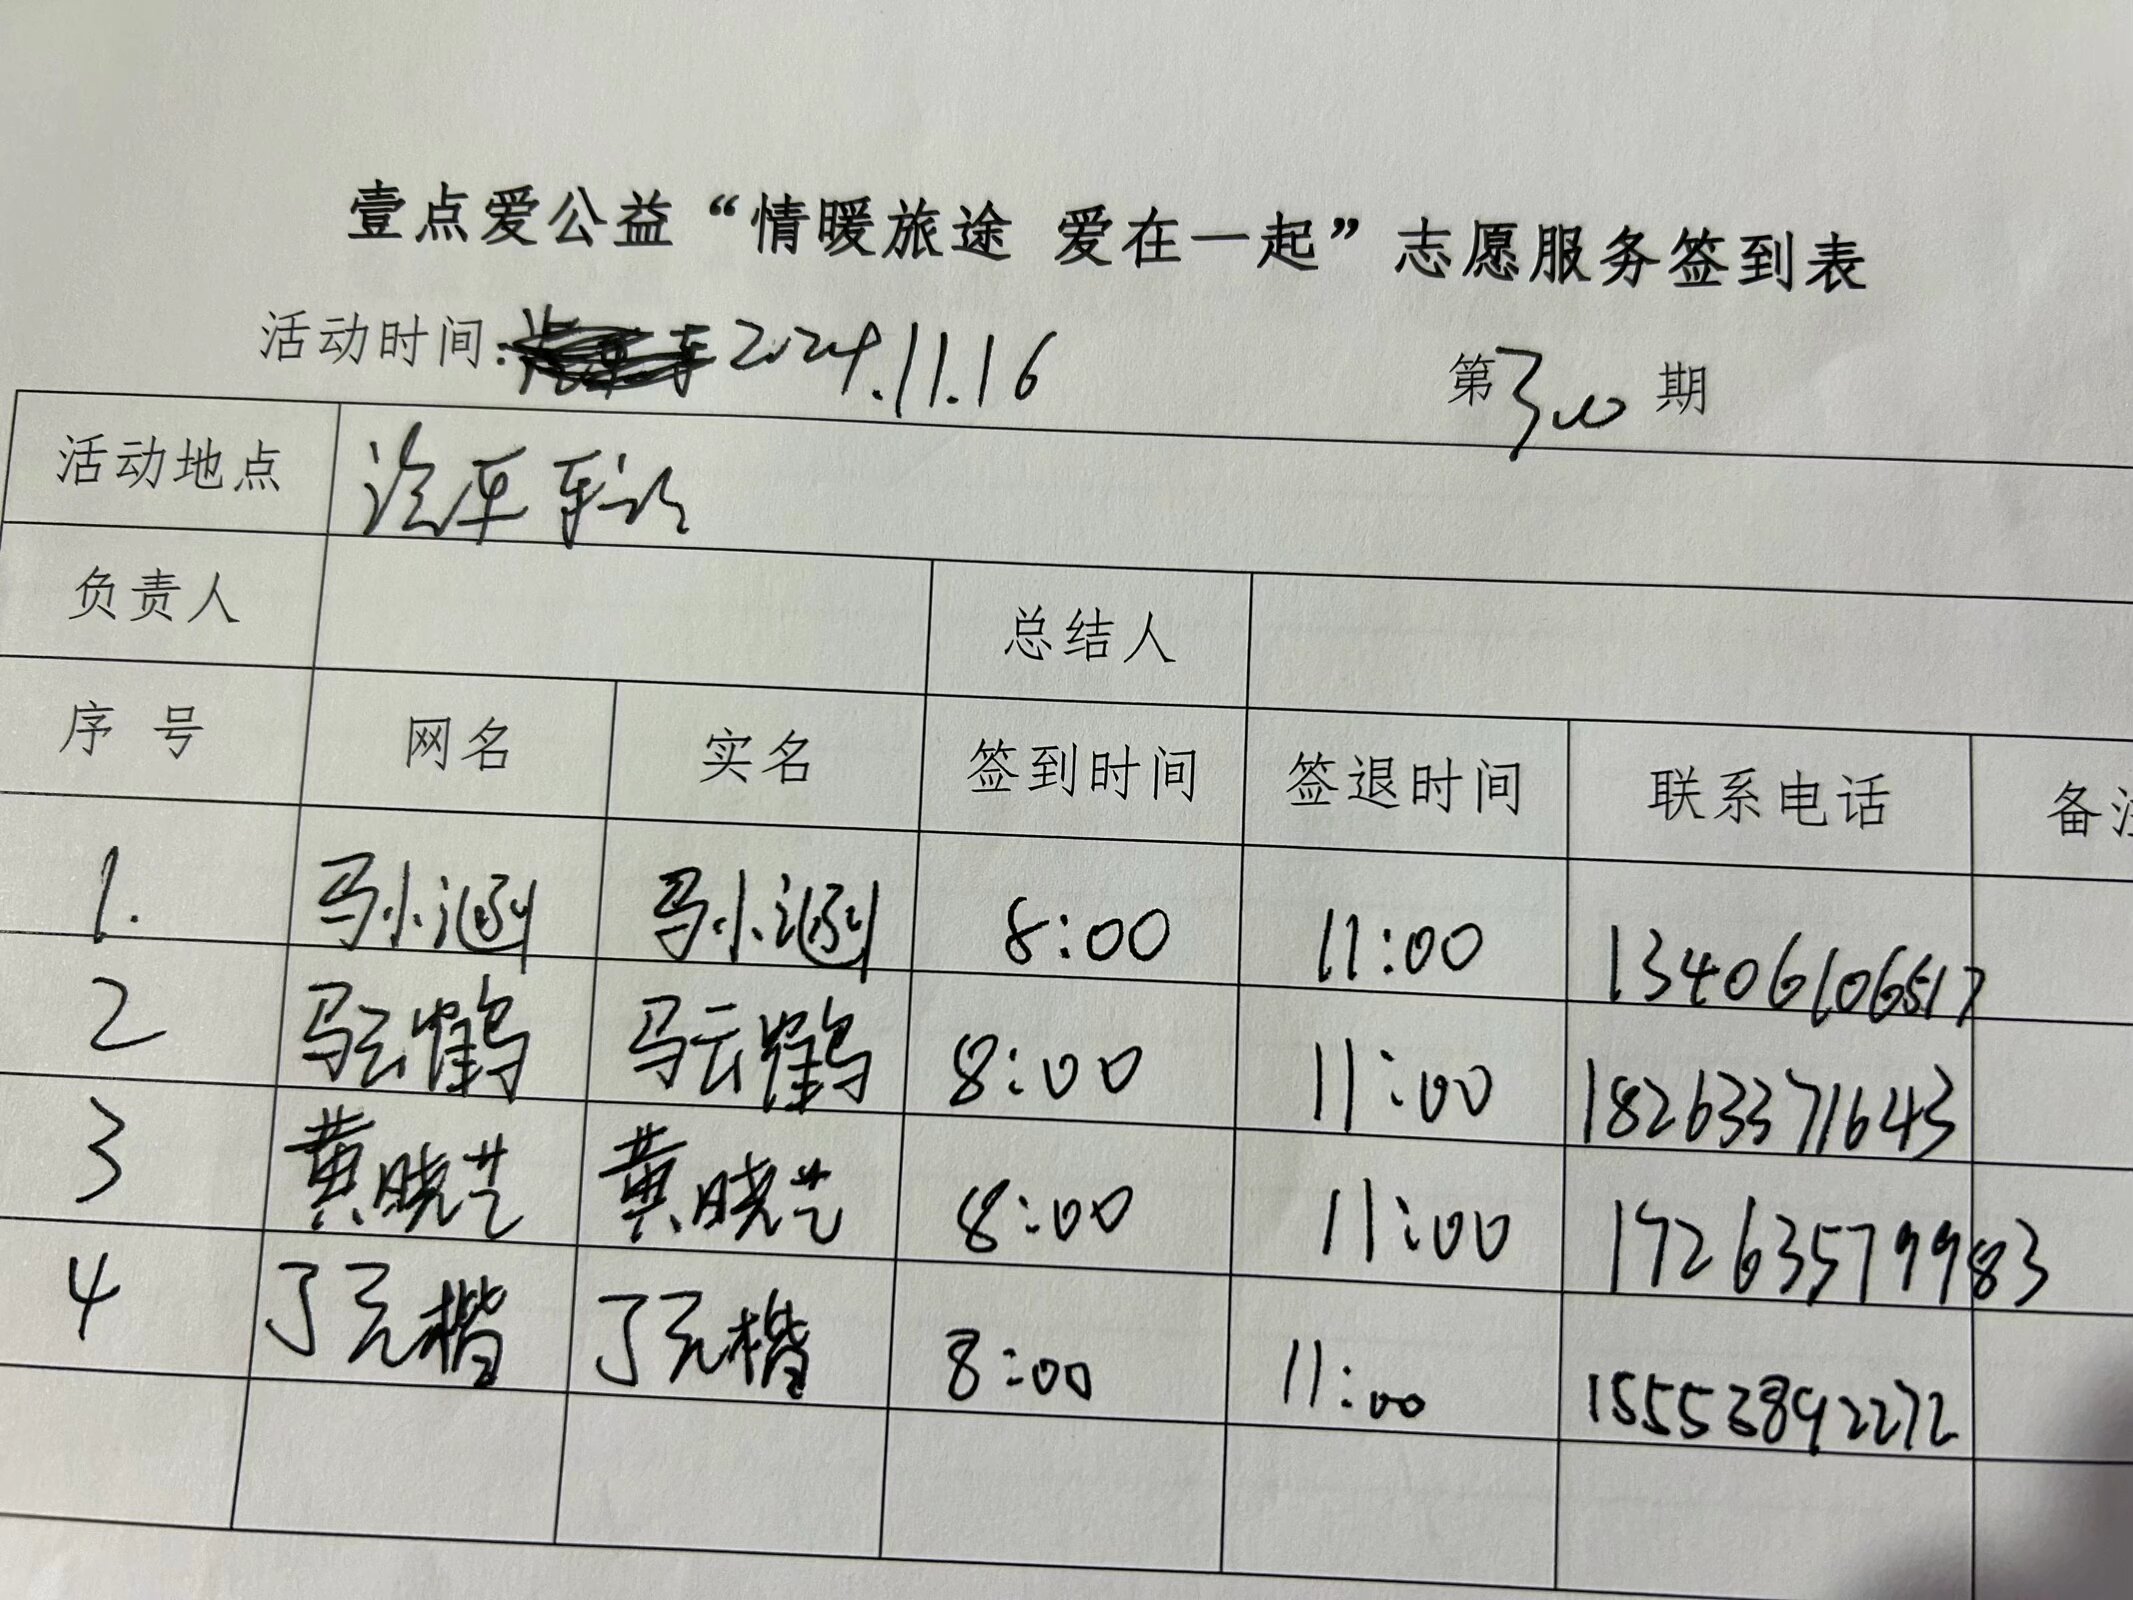 壹点爱公益“情暖旅途 爱在一起”志愿服务签到表
活动时间: 2024.11.16 第300期
活动地点 汽车东站
负责人 总结人
序 号 网名 实名 签到时间 签退时间 联系电话 备注
1. 马小涵 马小涵 8:00 11:00 13406106517
2 马云鹤 马云鹤 8:00 11:00 18263371643
3 黄晓艺 黄晓艺 8:00 11:00 17263579983
4 丁元楷 丁元楷 8:00 11:00 15553892272